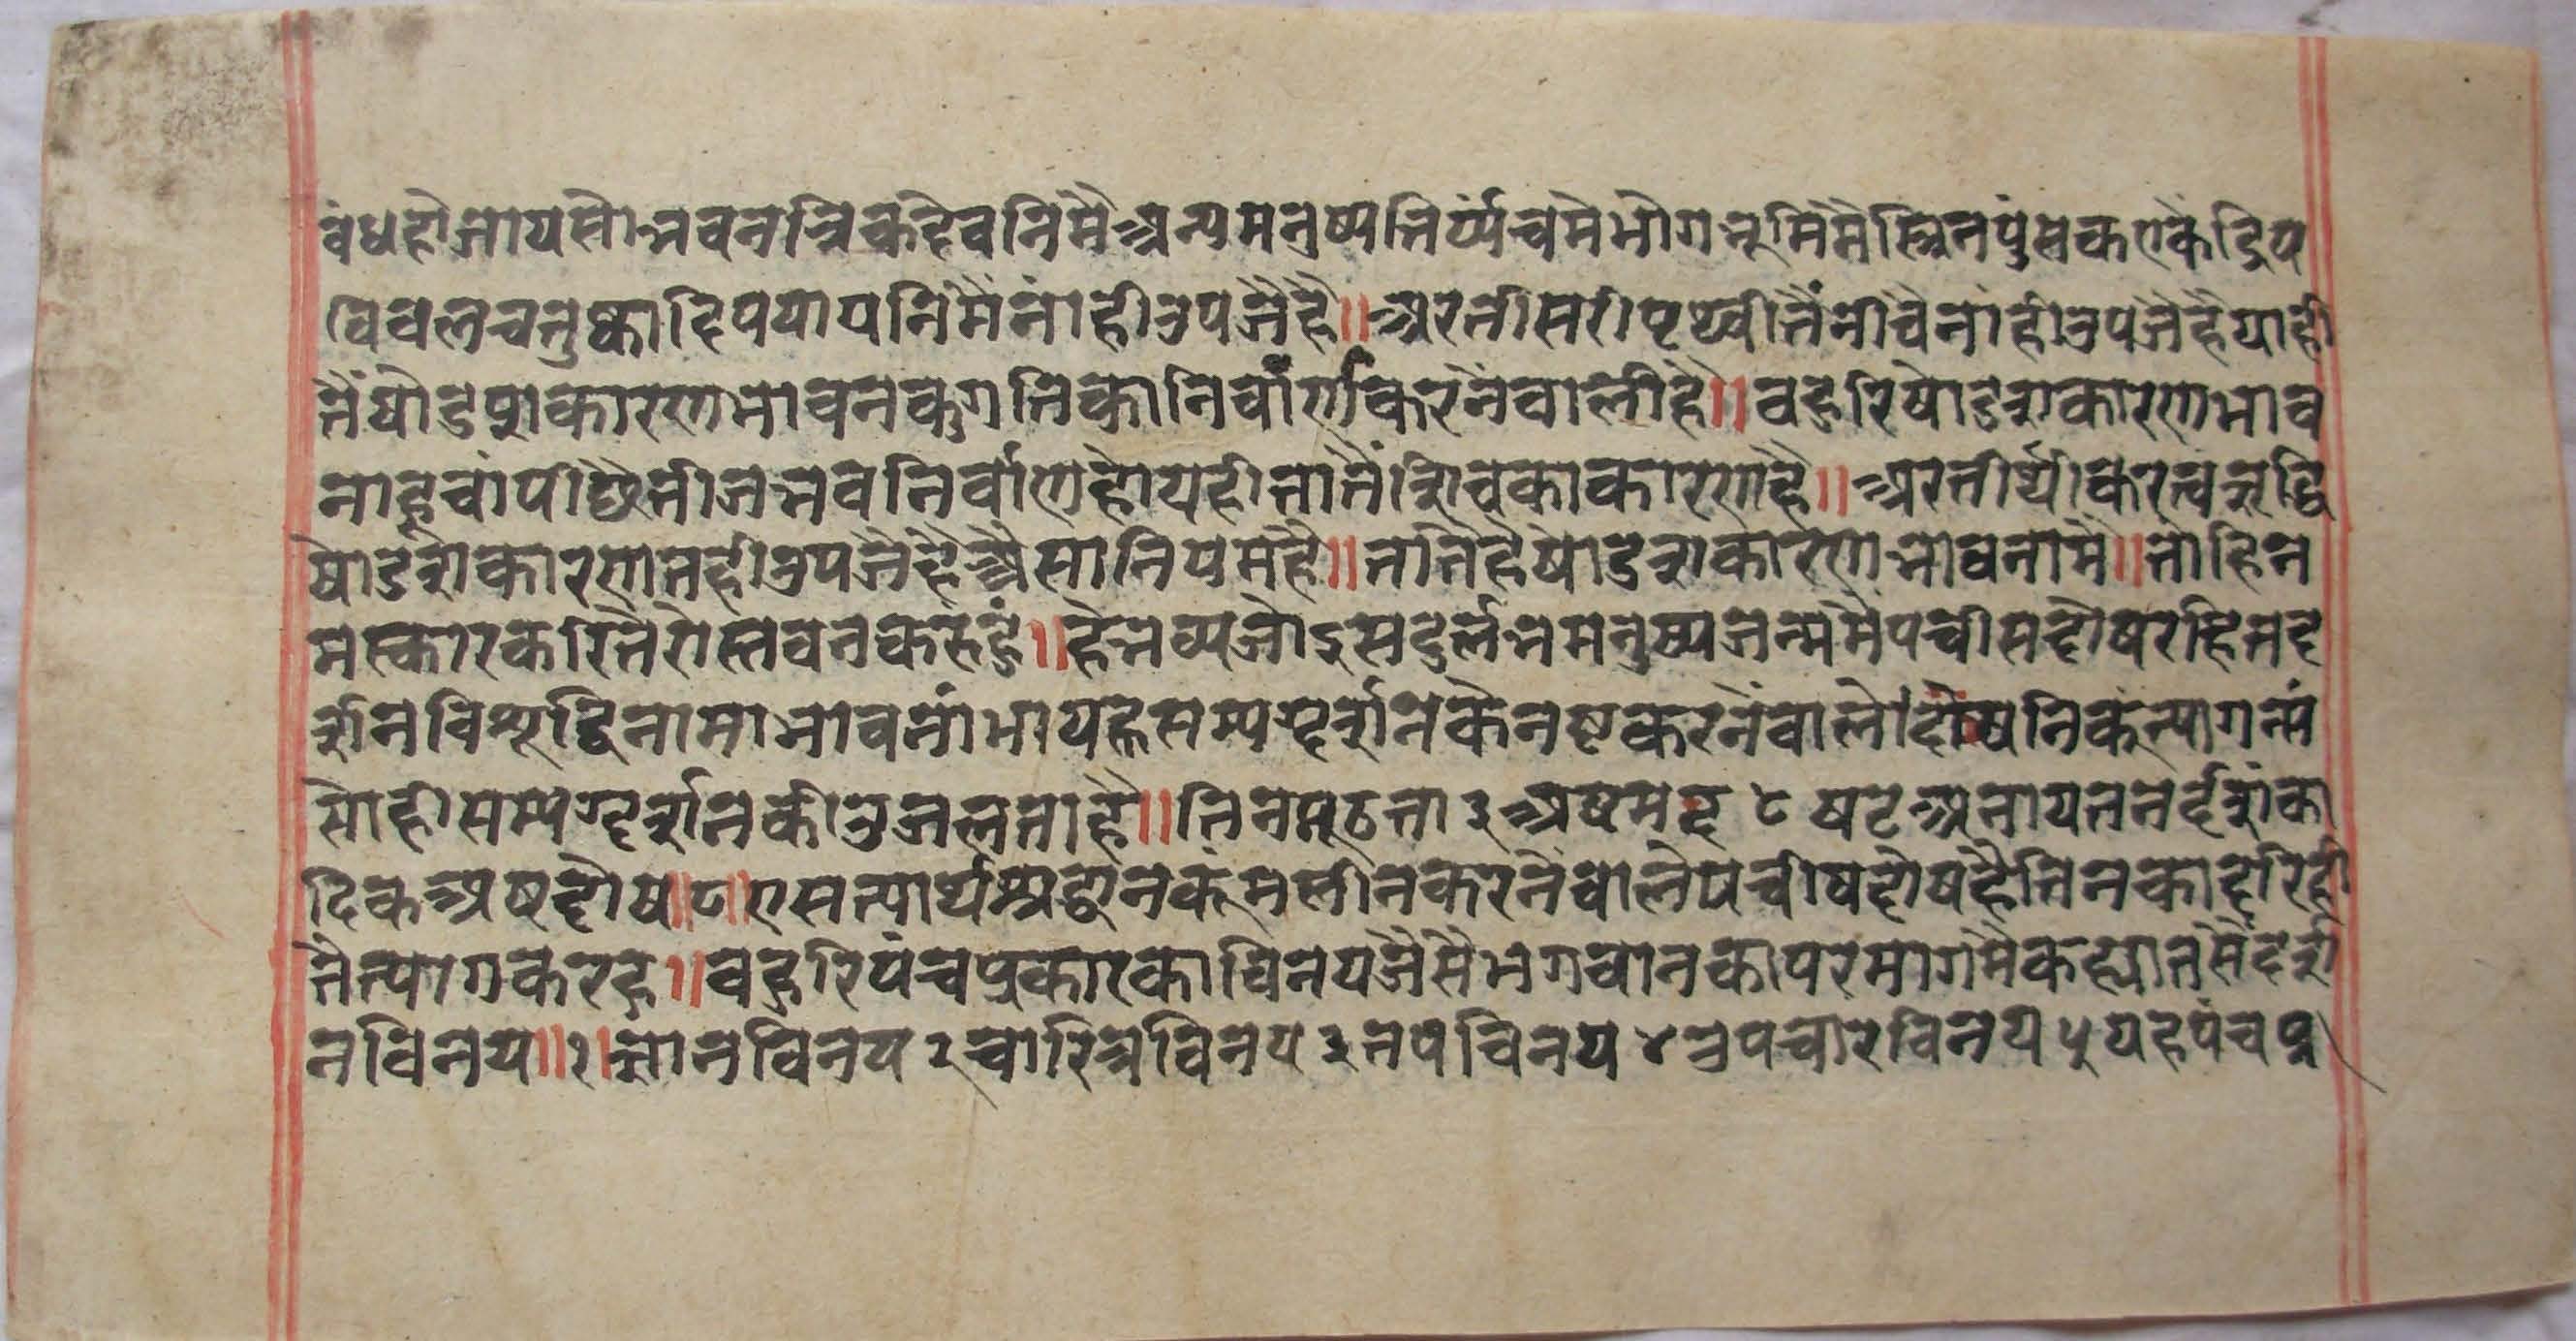 वंधहोजायसोभवनत्रिकदेवनिमैअन्यमनुष्यतिर्य्यंचमेभोगभूमिमेस्त्रिनपुंसकएकेंद्रिय
विकलचतुष्कादिपर्यायनिमैंनांहीउपजैहै॥अरतीसरीपृथ्वीतैंनीचैनांहीउपजैहैयाही
तैंषोडशकारणभावनकुगतिकानिर्वाणकरनेवालीहै॥वहुरिषोडशकारणभाव
नाहूवांपीछैतीजभवनिर्वाणहोयहीतातैंशिवकाकारणहै॥अरतीर्थंकरत्वऋद्धि
षोडशकारणतहीउपजैहैअैसानियमहै॥तातैहैषोडशकारणभावनामे॥तोहिन
मस्कारकरितेरोस्तवनकरूहूं॥हेभव्यजोइसदुर्लभमनुष्यजन्ममैपचीसदोषरहितद
र्शनविशुद्धिनामाभावनांभायहूसम्यग्दर्शनकेनष्टकरनेवालेदोषनिकूंत्याग
सोहीसम्यग्दर्शनकीउजलताहै॥तिनमूढता३अष्टमद८षटअनायतन६शंका
दिकअष्टदोष॥८॥एसत्यार्थश्रद्धानकूंमलीनकरनेवालेपचीषदोषहैतिनकादूरिही
तैत्यागकरहू॥वहुरिपंचप्रकारकाविनयजैसैभगवानकापरमागमैकह्यातैसैंदर्श
नविनय॥१॥ज्ञानविनय२चारित्रविनय३तपविनय४उपचारविनय५यहपंचप्र